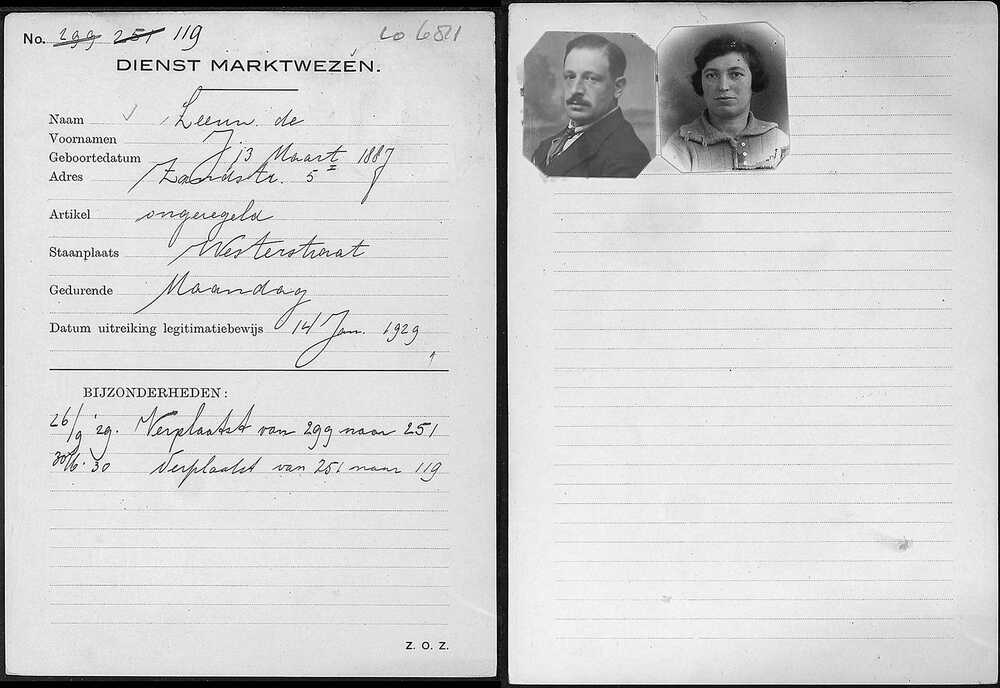 No. 299 251 119
DIENST MARKTWEZEN.
Naam Leeuw. de
Voornamen J
Geboortedatum 13 Maart 1887
Adres Zandstr. 5 II
Artikel ongeregeld
Staanplaats Westerstraat
Gedurende Maandag
Datum uitreiking legitimatiebewijs 14 Jan. 1929
BIJZONDERHEDEN:
26/9 '29. Verplaatst van 299 naar 251
30/6 '30 Verplaatst van 251 naar 119
Z. O. Z.